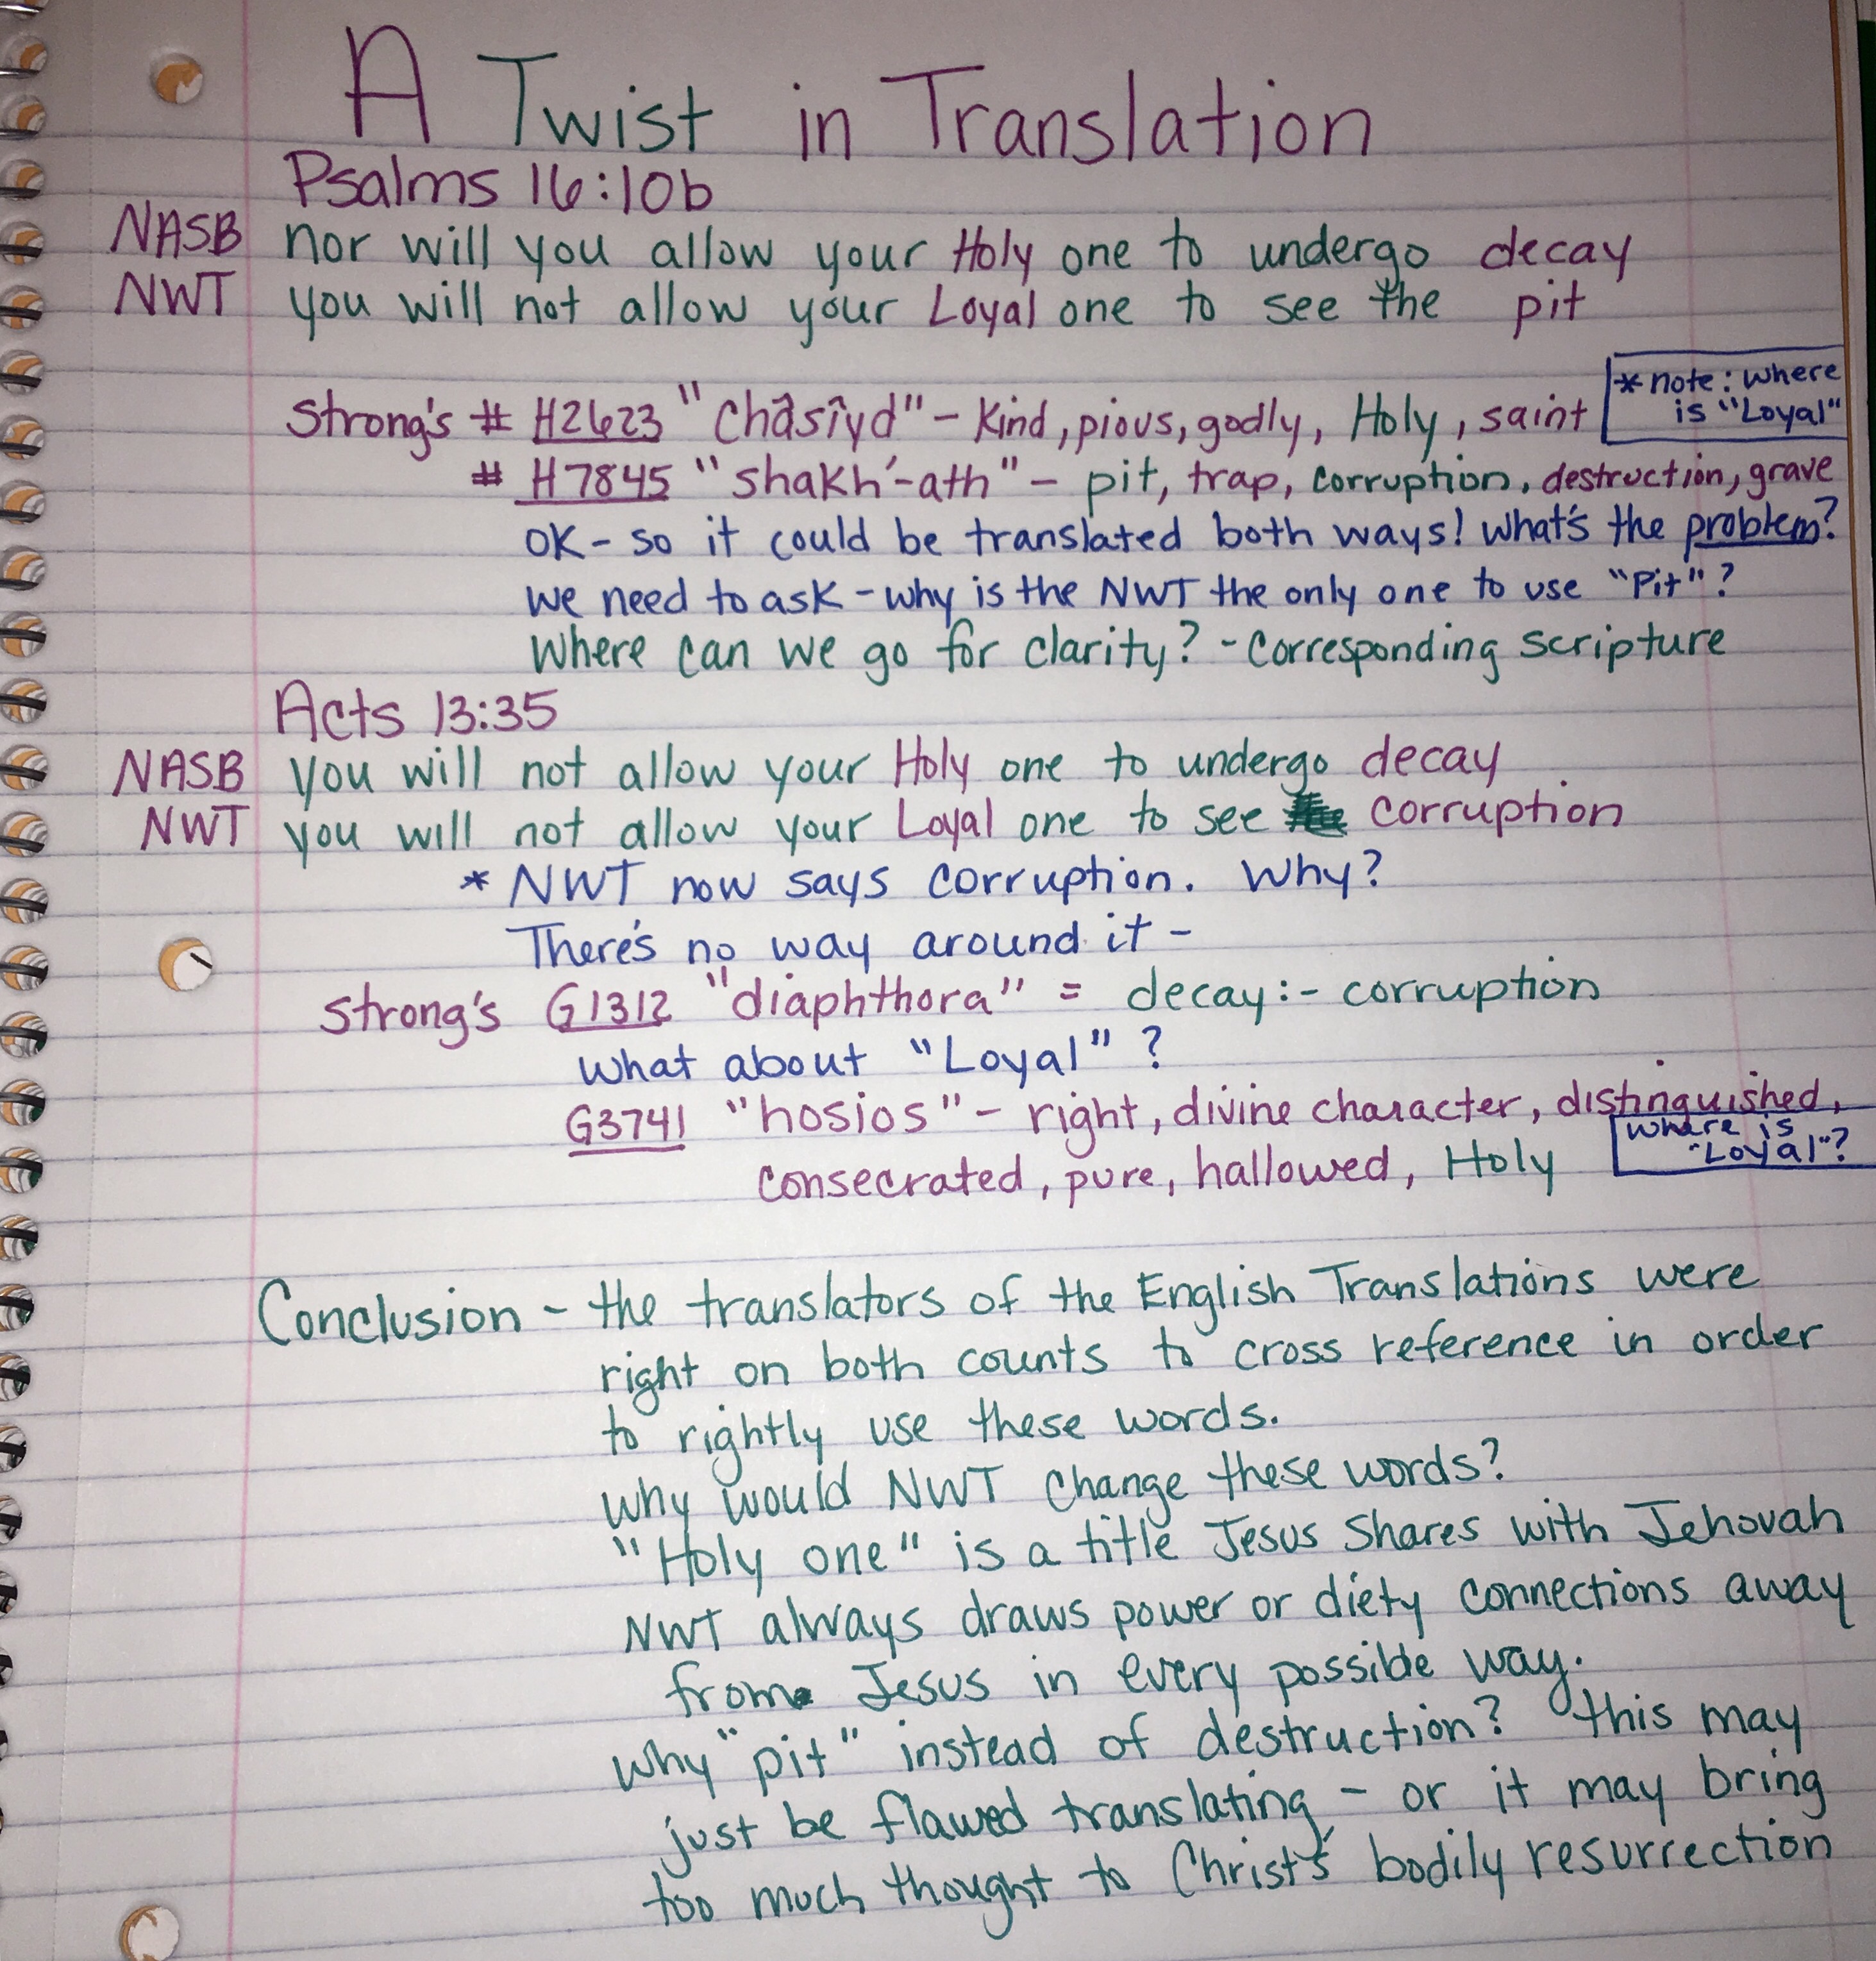 A Twist in Translation
Psalms 16:10b
NASB nor will you allow your Holy one to undergo decay
NWT you will not allow your Loyal one to see the pit
Strong's # H2623 "Châsîyd" - Kind, pious, godly, Holy, saint
* note: where
is "Loyal"
# H7845 "shakh'-ath" - pit, trap, corruption, destruction, grave
OK - so it could be translated both ways! What's the problem?
we need to ask - why is the NWT the only one to use "Pit"?
Where can we go for clarity? - Corresponding scripture
Acts 13:35
NASB you will not allow your Holy one to undergo decay
NWT you will not allow your Loyal one to see corruption
* NWT now says corruption. Why?
There's no way around it -
Strong's G1312 "diaphthora" = decay:- corruption
What about "Loyal"?
G3741 "hosios" - right, divine character, distinguished,
consecrated, pure, hallowed, Holy
where is
"Loyal"?
Conclusion - the translators of the English Translations were
right on both counts to cross reference in order
to rightly use these words.
Why would NWT change these words?
"Holy one" is a title Jesus Shares with Jehovah
NWT always draws power or diety connections away
from Jesus in every possible way.
Why "pit" instead of destruction? this may
just be flawed translating - or it may bring
too much thought to Christ's bodily resurrection